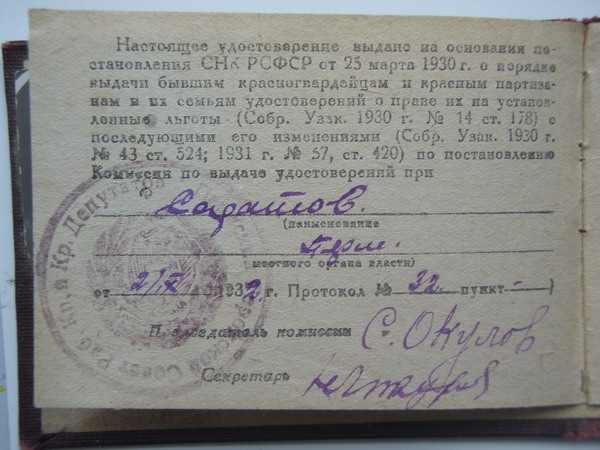 Настоящее удостоверение выдано на основании по-
становления СНК РСФСР от 25 марта 1930 г. о порядке
выдачи бывшим красногвардейцам и красным партиза-
нам и их семьям удостоверений о праве их на установ-
ленные льготы (Собр. Узак. 1930 г. № 14 ст. 178) с
последующими его изменениями (Собр. Узак. 1930 г.
№ 43 ст. 524; 1931 г. № 57, ст. 420) по постановлению
Комиссии по выдаче удостоверений при
Саратов.
(наименование
местного органа власти)
от 2/IX 1932 г. Протокол № 32 пункт -
Председатель комиссии С. Окулов
Секретарь
Совет Раб. Кр. и Кр. Депутатов